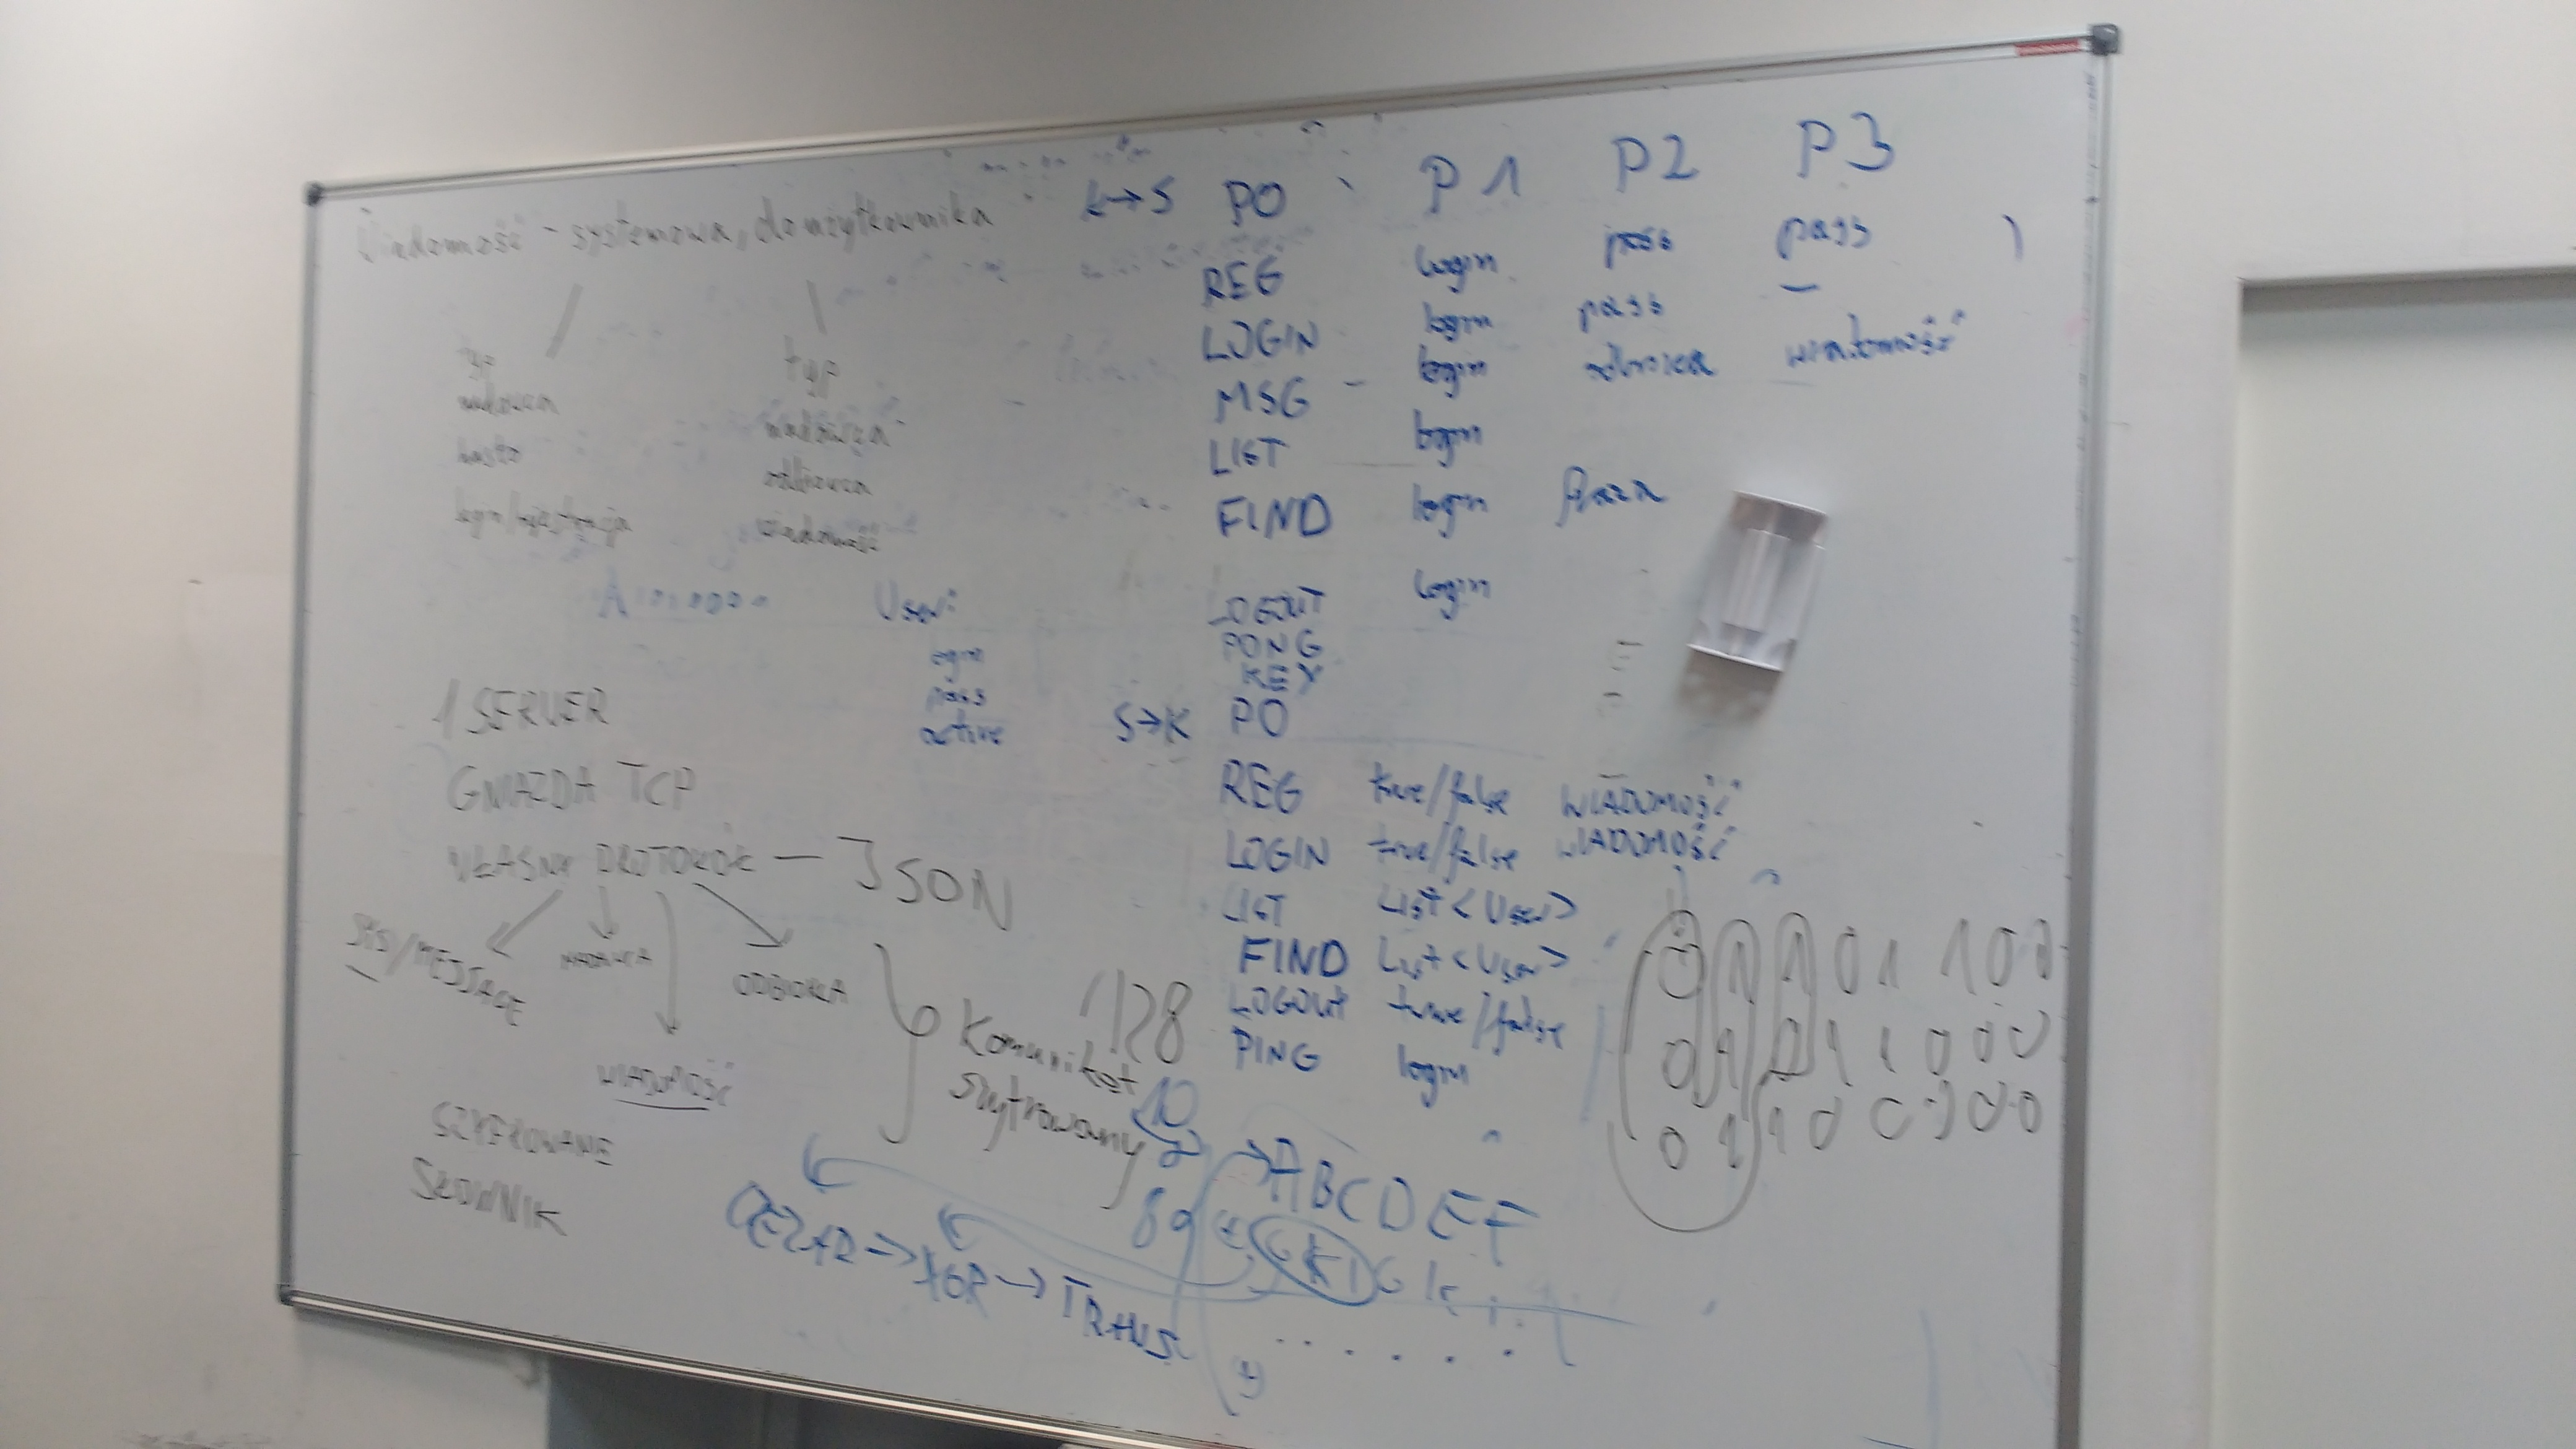 Wiadomość - systemowa, do użytkownika
typ
nadawca
hasło
login/rejestracja
typ
nadawca
odbiorca
wiadomość
User:
login
pass
active
1 SERVER
GNIAZDA TCP
WŁASNY PROTOKÓŁ — JSON
SYS/MESSAGE
NADAWCA
ODBIORCA
WIADOMOŚĆ
SZYFROWANE
SŁOWNIK
Komunikat
szyfrowany
128
10
CEZAR → XOR → TRANS
K→S P0 P1 P2 P3
REG login pass pass
LOGIN login pass —
MSG - login odbiorca wiadomość
LIST login
FIND login fraza
LOGOUT login
PONG
KEY
S→K P0
REG true/false WIADOMOŚĆ
LOGIN true/false WIADOMOŚĆ
LIST List<User>
FIND List<User>
LOGOUT true/false
PING login
ABCDEF